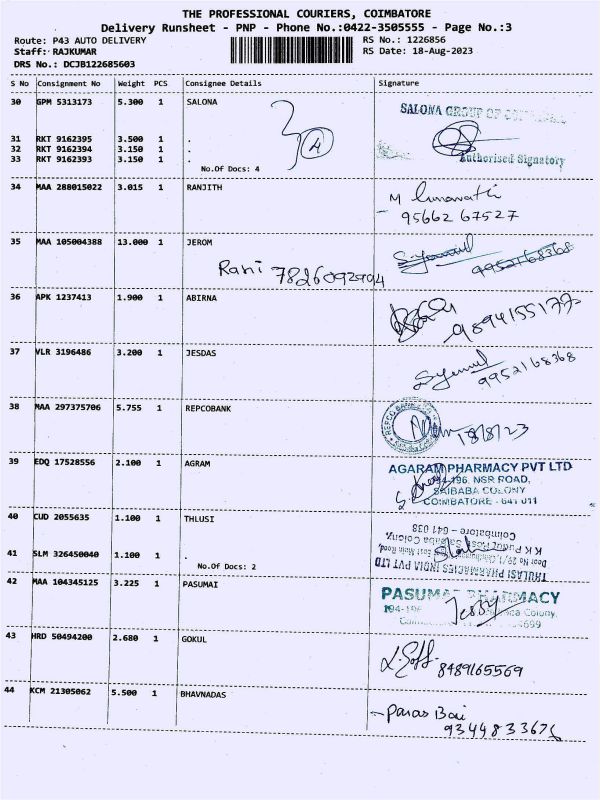 THE PROFESSIONAL COURIERS, COIMBATORE
Delivery Runsheet - PNP - Phone No.:0422-3505555 - Page No.:3
Route: P43 AUTO DELIVERY RS No.: 1226856
Staff: RAJKUMAR RS Date: 18-Aug-2023
DRS No.: DCJB122685603
S No Consignment No Weight PCS Consignee Details Signature
30 GPM 5313173 5.300 1 SALONA
SALONA GROUP OF
4
31 RKT 9162395 3.500 1 .
32 RKT 9162394 3.150 1 .
33 RKT 9162393 3.150 1 .
Authorised Signatory
No.Of Docs: 4
34 MAA 288015022 3.015 1 RANJITH
95662 67527
35 MAA 105004388 13.000 1 JEROM
9952168368
Rani 7826092994
36 APK 1237413 1.900 1 ABIRNA
9894155177
37 VLR 3196486 3.200 1 JESDAS
9952168368
38 MAA 297375706 5.755 1 REPCOBANK
REPCO BANK
18/8/23
39 EDQ 17528556 2.100 1 AGRAM
AGARAM PHARMACY PVT LTD
194-196, NSR ROAD,
SAIBABA COLONY
COIMBATORE - 641 011
40 CUD 2055635 1.100 1 THLUSI
41 SLM 326450040 1.100 1 .
No.Of Docs: 2
THULASI PHARMACIES INDIA PVT LTD
Door No 29/1, East Main Road,
K K Pudur Post, Saibaba Colony,
Coimbatore - 641 038
42 MAA 104345125 3.225 1 PASUMAI
PASUMAI PHARMACY
194-196
Colony,
43 HRD 50494200 2.680 1 GOKUL
8489165569
44 KCM 21305062 5.500 1 BHAVNADAS
Paras Bai
9344833676